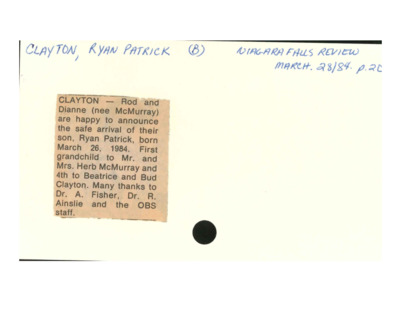 CLAYTON, RYAN PATRICK (B) NIAGARA FALLS REVIEW
MARCH. 28/84. p.20
CLAYTON — Rod and
Dianne (nee McMurray)
are happy to announce
the safe arrival of their
son, Ryan Patrick, born
March 26, 1984. First
grandchild to Mr. and
Mrs. Herb McMurray and
4th to Beatrice and Bud
Clayton. Many thanks to
Dr. A. Fisher, Dr. R.
Ainslie and the OBS
staff.